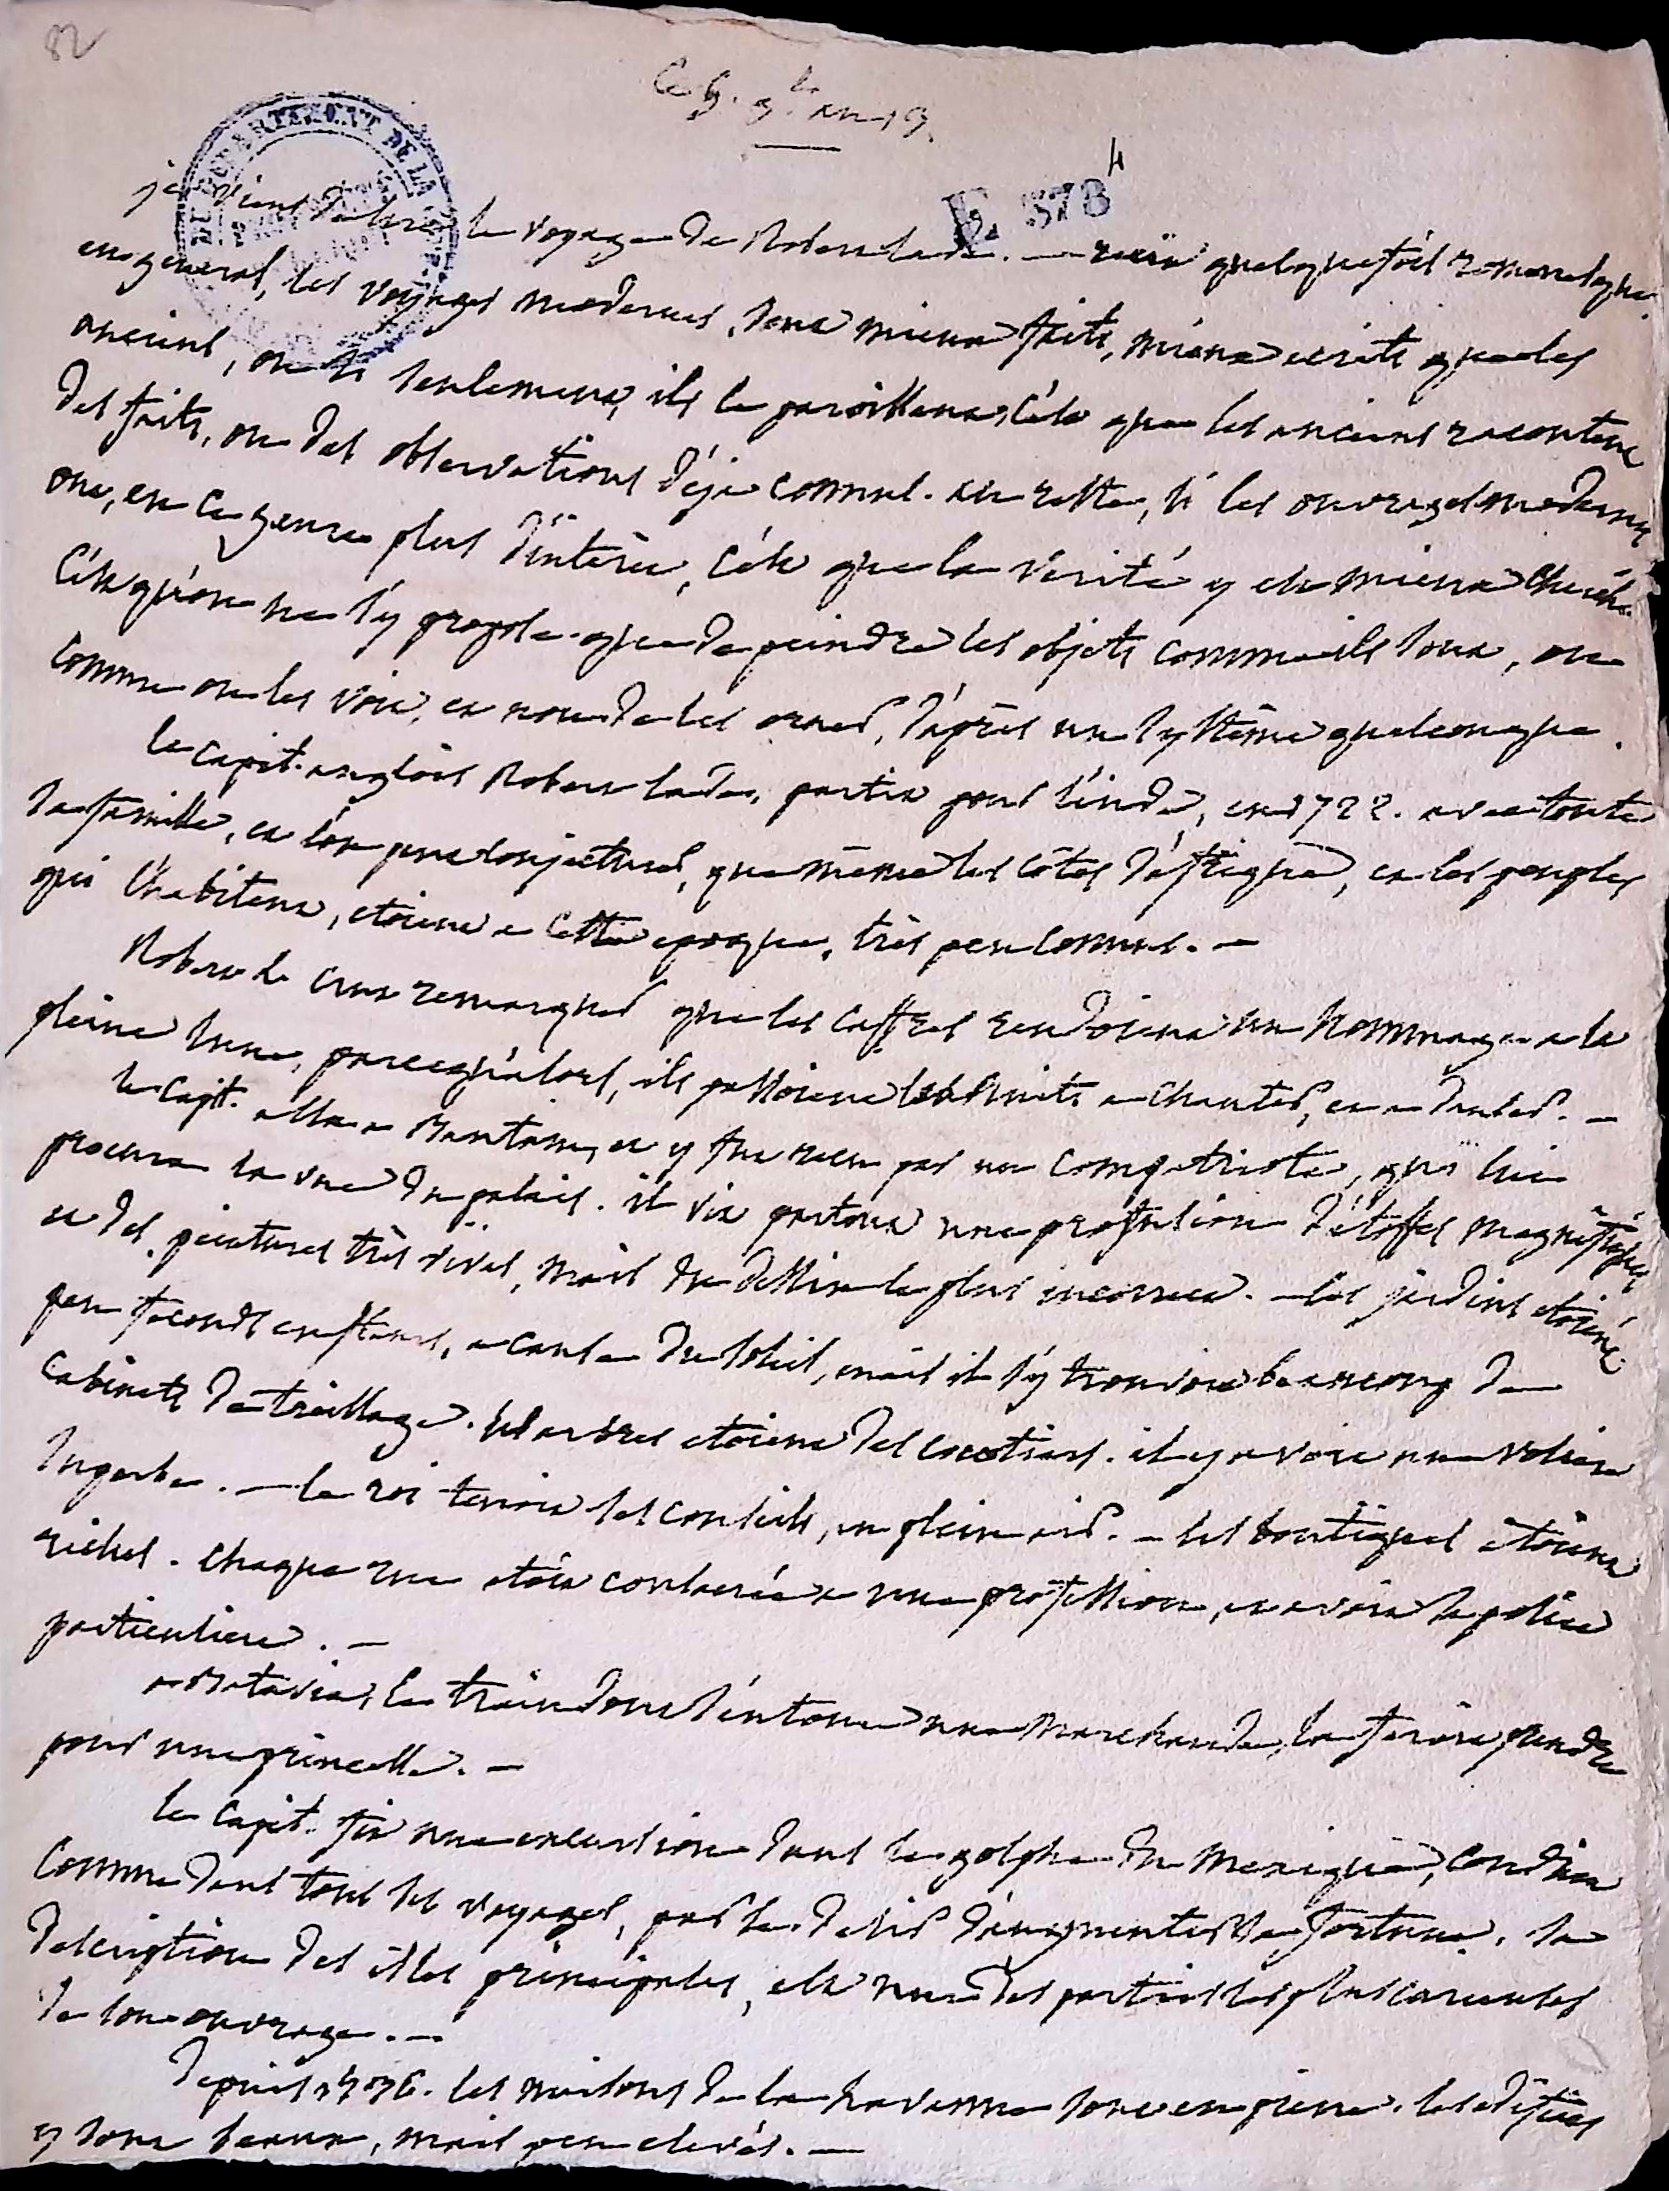 82
Ce 5. 9.bre an 13.
E 378 4
DEPARTEMENT DE LA
je viens de lire le voyage de Robert Lade. — recit quelquefois romanesque.
en general, les voyages modernes, sont mieux faits, mieux ecrits que les
anciens, ou si seulement, ils le paroissent, c'est que les anciens racontent
des faits, ou des observations déja connus. au reste, si les ouvrages modernes
ont, en ce genre plus d'intérêt, c'est que la vérité y est mieux cherchée
c'est qu'on ne s'y propose que de peindre les objets comme ils sont, ou
comme on les voit, et non de les orner, d'après un systême quelconque.
le capit. anglois Robert Lade, partit pour l'inde, en 1722. avec toute
sa famille, et l'on peut conjecturer, que même les côtes d'affrique, et les peuples
qui l'habitent, etoient a cette epoque, très peu connus. —
Robert L. crut remarquer que les caffres rendoient un hommage a la
pleine lune, parce qu'alors, ils passoient les nuits a chanter, et a danser. —
le capit. alla a Bantam, et y fut recu par un compatriote, qui lui
procura la vue du palais. il vit partout une profusion d'étoffes magnifiques
et des peintures très vives, mais du dessin le plus incorrect. — les jardins etoient
peu feconds en fleurs, a cause du soleil, mais il s'y trouvoit beaucoup de
cabinets de treillage. les arbres etoient des cocotiers. il y avoit une voliere
superbe. — le roi tenoit ses conseils, en plein air. — les boutiques etoient
riches. chaque rue etoit consacrée a une profession, et avoit sa police
particuliere. —
a Batavia, le train dont s'entoure une marchande, la feroit prendre
pour une princesse. —
le capit. fit une excursion dans le golphe du Mexique, conduit
comme dans tous ses voyages, par le desir d'augmenter sa fortune. la
description des isles principales, est une des parties les plus curieuses
de son ouvrage. —
depuis les maisons de la havanne sont en pierre. les edifices
y sont beaux, mais peu elevés. —